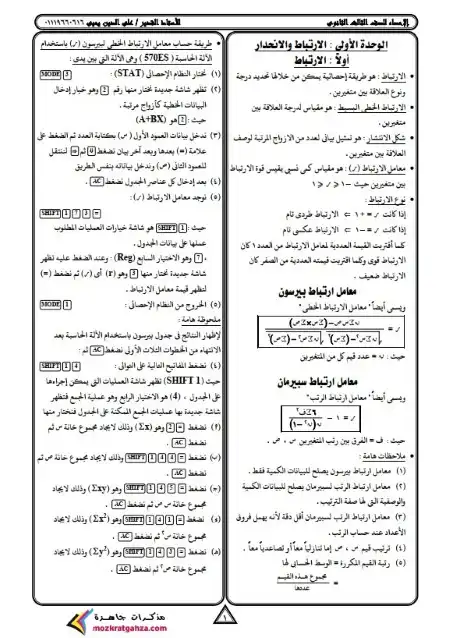 الإحصاء للصف الثالث الثانوي
الأستاذ القدير / علي الدين يحيي ٠١١١٩٦٦٠٦١٦
الوحدة الأولى : الارتباط والانحدار
أولاً : الارتباط
• الارتباط : هو طريقة إحصائية يمكن من خلالها تحديد درجة
ونوع العلاقة بين متغيرين.
• الارتباط الخطي البسيط : هو مقياس لدرجة العلاقة بين
متغيرين.
• شكل الانتشار : هو تمثيل بياني لعدد من الأزواج المرتبة لوصف
العلاقة بين متغيرين.
• معامل الارتباط (ر) : هو مقياس كمي نسبي يقيس قوة الارتباط
بين متغيرين حيث −١ ≤ ر ≤ ١
• نوع الارتباط :
إذا كانت ر = +١ ⇐ الارتباط طردي تام
إذا كانت ر = −١ ⇐ الارتباط عكسي تام
كلما اقتربت القيمة العددية لمعامل الارتباط من العدد ١ كان
الارتباط قوى وكلما اقتربت قيمته العددية من الصفر كان
الارتباط ضعيف .
معامل ارتباط بيرسون
ويسمى أيضاً " معامل الارتباط الخطى"
حيث : ن = عدد قيم كل من المتغيرين
معامل ارتباط سبيرمان
ويسمى أيضاً " معامل ارتباط الرتب"
ر = ١ − ٦ Σ ف٢ / ن(ن٢ − ١)
حيث : ف = الفرق بين رتب المتغيرين س ، ص .
• ملاحظات هامة :
(١) معامل ارتباط بيرسون يصلح للبيانات الكمية فقط .
(٢) معامل ارتباط الرتب لسبيرمان يصلح للبيانات الكمية
والوصفية التي لها صفة الترتيب.
(٣) معامل ارتباط الرتب لسبيرمان أقل دقة لأنه يهمل فروق
الأعداد عند حساب الرتب.
(٤) ترتيب قيم س ، ص إما تنازلياً معاً أو تصاعدياً معاً .
(٥) رتبة القيم المكررة = الوسط الحسابى لها
= مجموع هذه القيم / عددها
• طريقة حساب معامل الارتباط الخطى لبيرسون (ر) باستخدام
الآلة الحاسبة (570ES) وهى الآلة التي بين يدى :
(١) نختار النظام الإحصائى (STAT) : MODE 3
(٢) تظهر شاشة جديدة نختار منها رقم 2 وهو خيار إدخال
البيانات الخطية كأزواج مرتبة .
حيث : 2 هو (A+BX)
(٣) ندخل بيانات العمود الأول (س) بكتابة العدد ثم الضغط على
للعمود الثانى (ص) وندخل بياناته بنفس الطريق
(٤) بعد إدخال كل عناصر الجدول نضغط AC .
(٥) نوجد معامل الارتباط (ر) :
SHIFT 1 7 3 =
حيث : SHIFT 1 هو شاشة خيارات العمليات المطلوب
عملها على بيانات الجدول.
، 7 وهو الاختيار السابع (Reg) : وعند الضغط عليه تظهر
شاشة جديدة نختار منها 3 وهو (r) أى (ر) ثم نضغط (=)
لتظهر قيمة معامل الارتباط .
(٥) الخروج من النظام الإحصائى : MODE 1
ملحوظة هامة :
لإظهار النتائج فى جدول بيرسون باستخدام الآلة الحاسبة بعد
الانتهاء من الخطوات الثلاث الأولى نضغط AC ثم :
(٤) نضغط المفاتيح التالية على التوالى : SHIFT 1 4
حيث (SHIFT 1) تظهر شاشة العمليات التى يمكن إجراءها
على الجدول ، (4) هو الاختيار الرابع وهو عملية الجمع فتظهر
شاشة جديدة بها عمليات الجمع الممكنة على الجدول فنختار منها
(أ) نضغط = 2 وهو (Σx) وذلك لايجاد مجموع خانة س ثم
نضغط AC .
(ب) نضغط = SHIFT 1 4 4 وذلك لايجاد مجموع خانة ص ثم
نضغط AC .
(ج) نضغط = SHIFT 1 4 5 وهو (Σxy) وذلك لايجاد
مجموع خانة س ص ثم نضغط AC .
(د) نضغط = SHIFT 1 4 1 وهو (Σx²) وذلك لايجاد
مجموع خانة س٢ ثم نضغط AC .
(ه) نضغط = SHIFT 1 4 3 وهو (Σy²) وذلك لايجاد
مجموع خانة ص٢ ثم نضغط AC .
١
مذكرات جاهزة
mozkratgahza.com